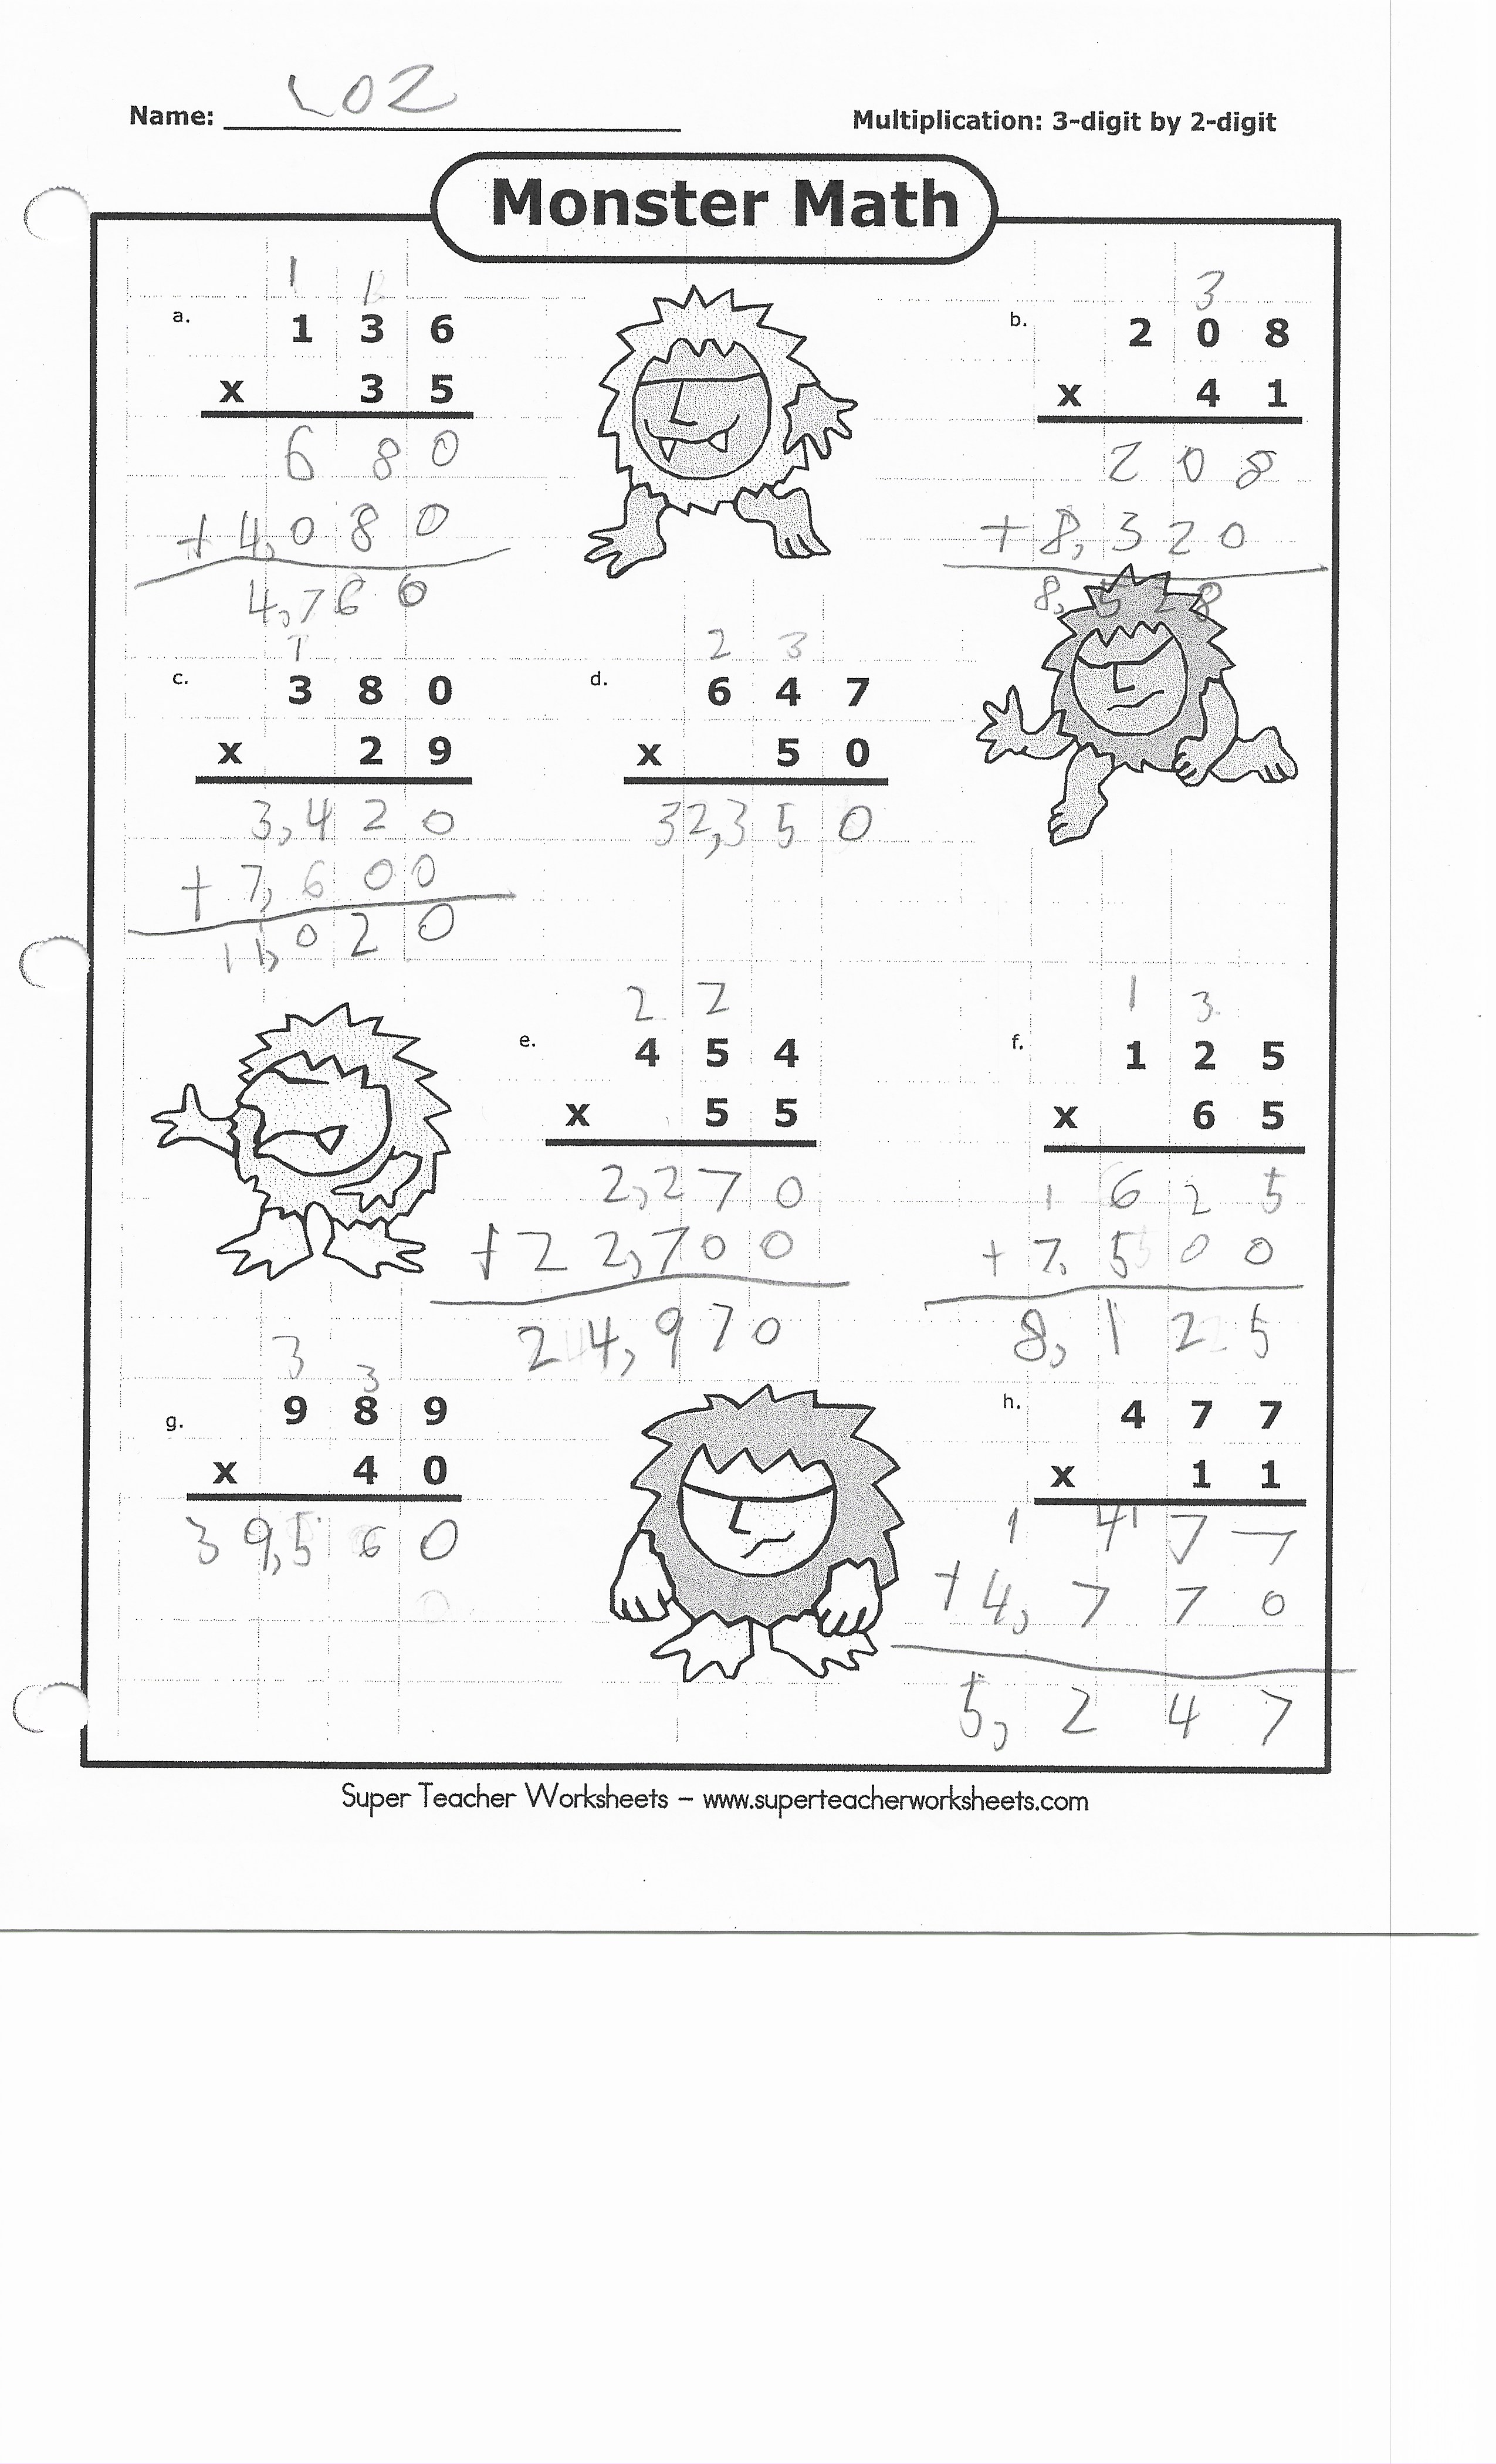 Name: LOZ
Multiplication: 3-digit by 2-digit
Monster Math
1 1
a. 1 3 6
x 3 5
6 8 0
+ 4,0 8 0
4,7 6 0
3
b. 2 0 8
x 4 1
2 0 8
+ 8,3 2 0
8,5 2 8
1
c. 3 8 0
x 2 9
3,4 2 0
+ 7,6 0 0
1 1,0 2 0
2 3
d. 6 4 7
x 5 0
3 2,3 5 0
2 2
e. 4 5 4
x 5 5
2,2 7 0
+ 2 2,7 0 0
2 4,9 7 0
1 3
f. 1 2 5
x 6 5
1 6 2 5
+ 7,5 0 0
8,1 2 5
3 3
g. 9 8 9
x 4 0
3 9,5 6 0
h. 4 7 7
x 1 1
1 4 1 7 7
+ 4,7 7 0
5,2 4 7
Super Teacher Worksheets – www.superteacherworksheets.com